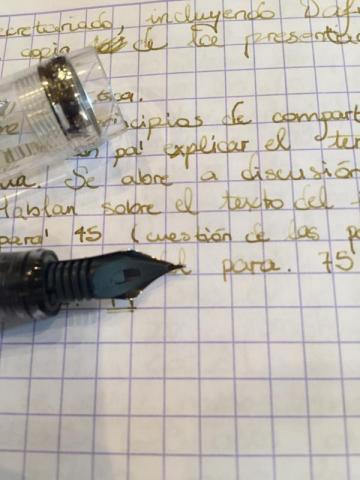 secretariado, incluyendo
copia de los presenta
principios de compart
explicar el ter
Se abre a discusión
Hablan sobre el texto del
para 45 (cuestión de las pa
para. 75